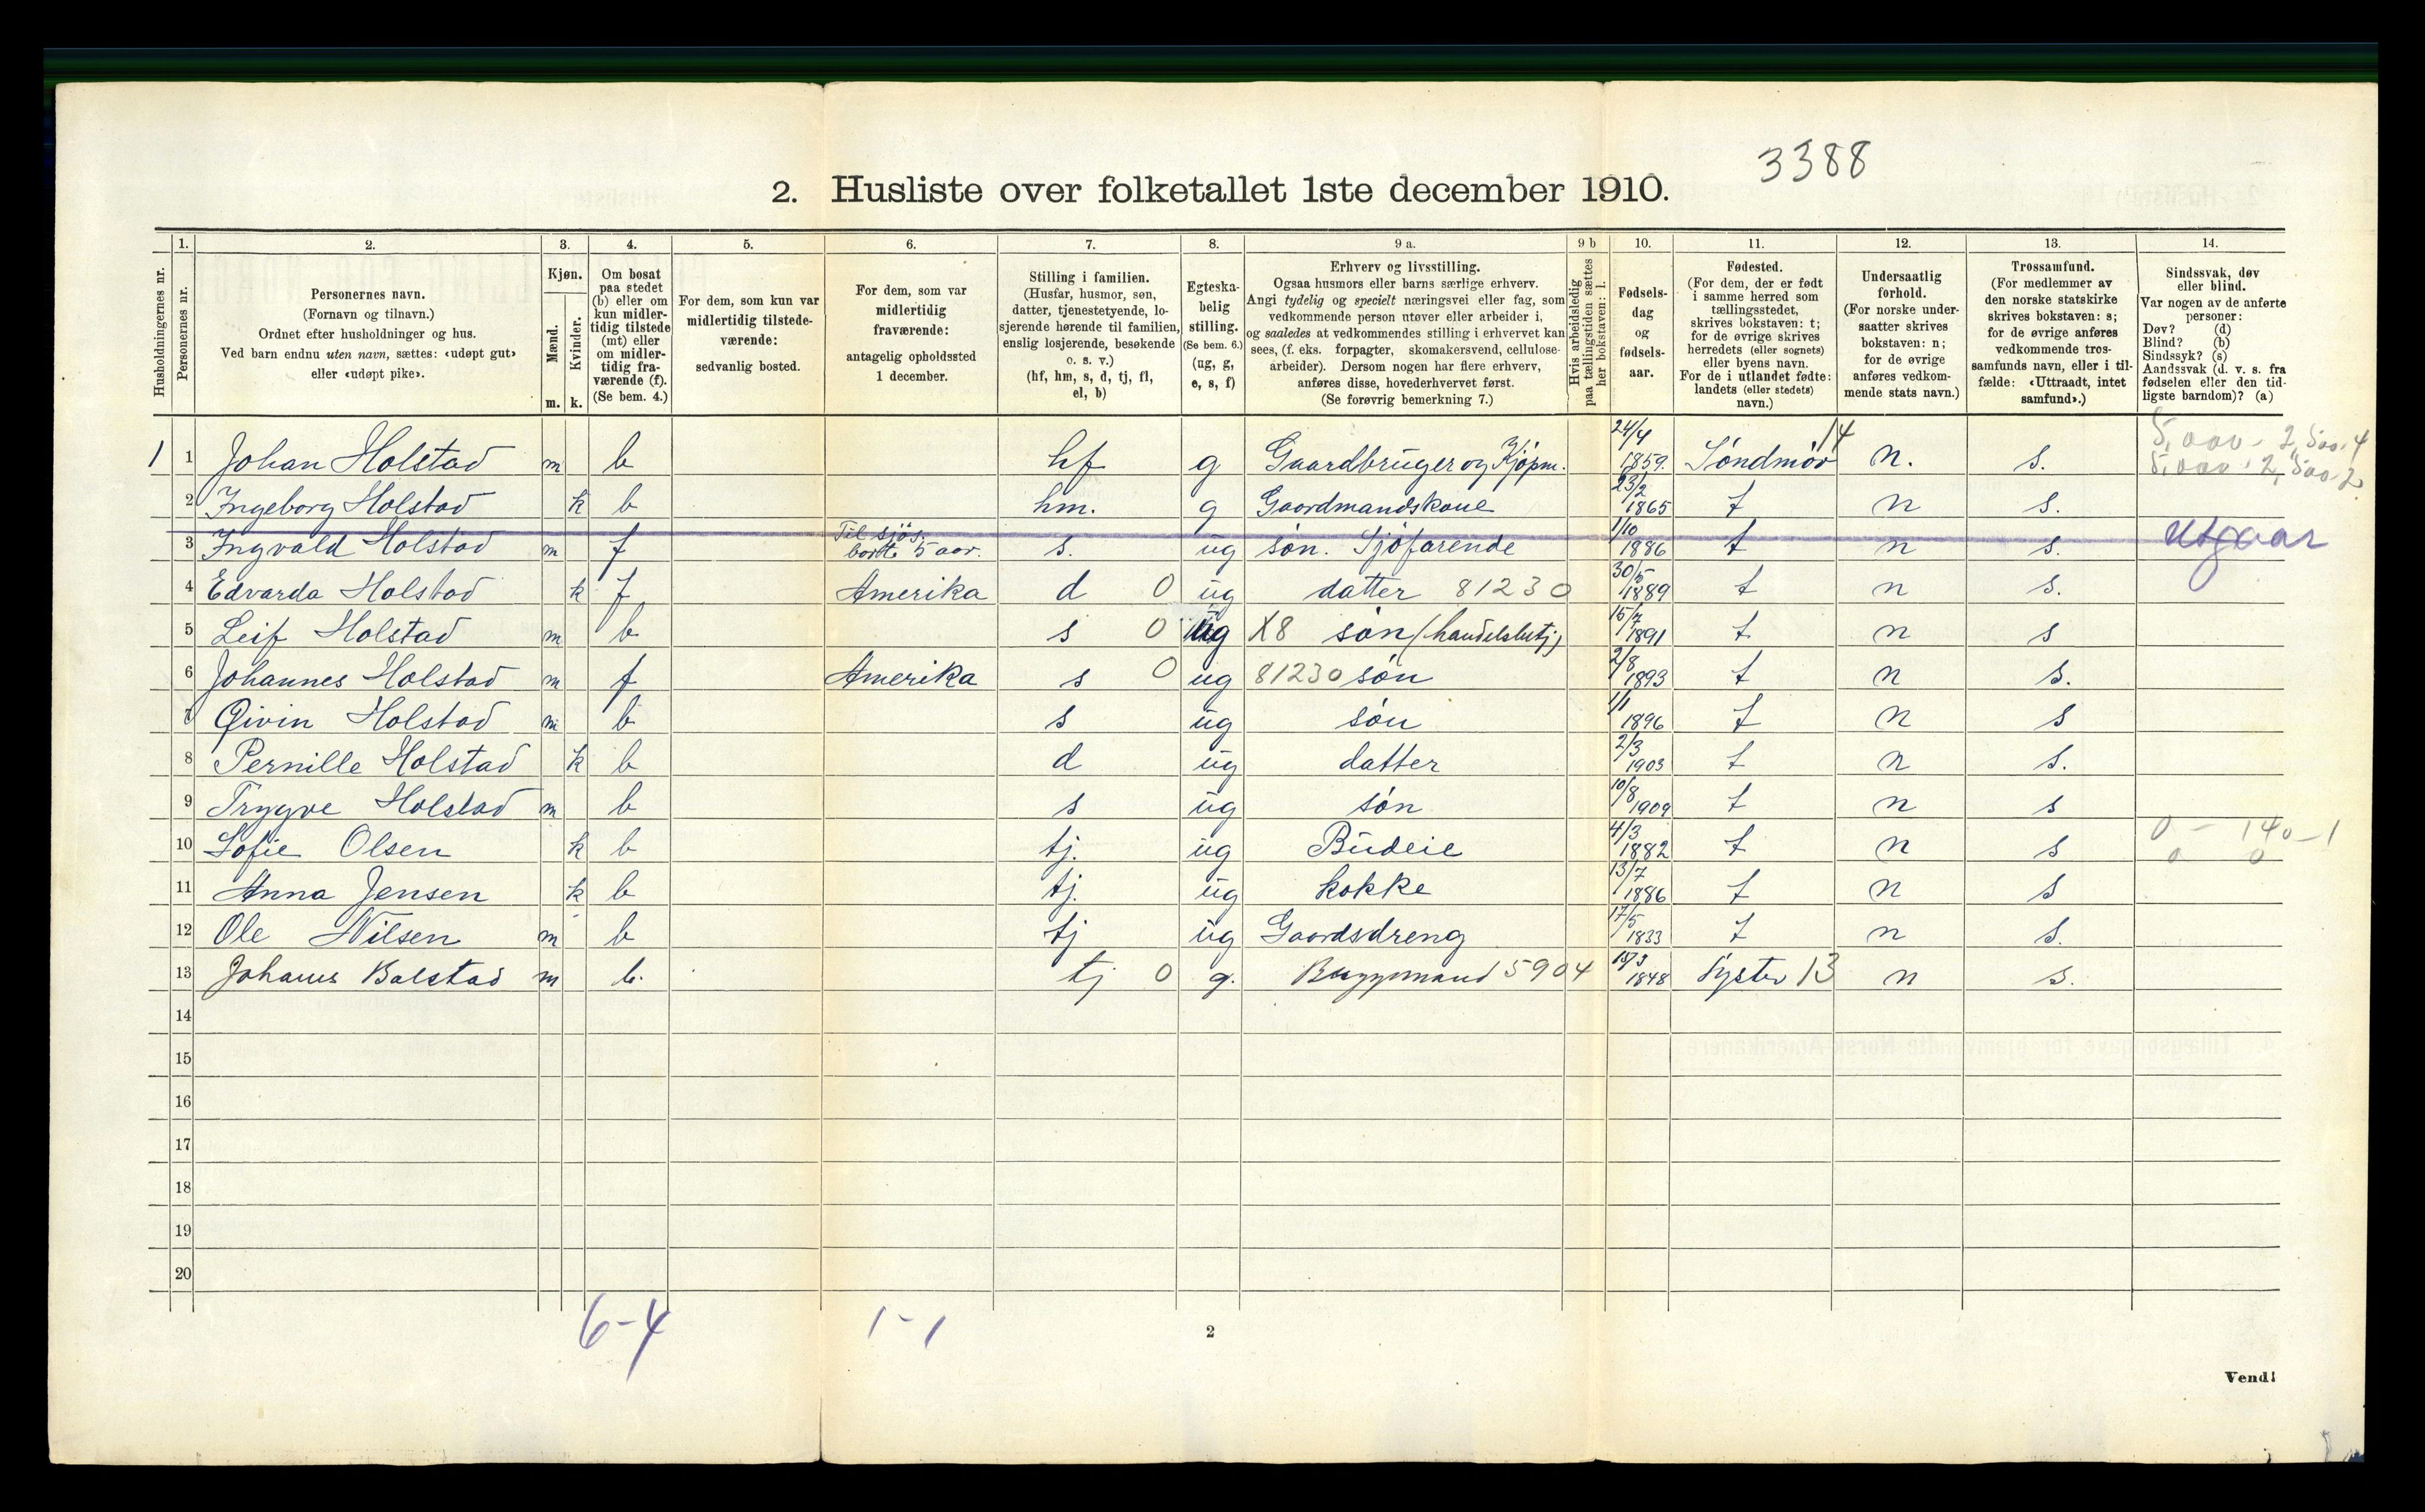 3388
2. Husliste over folketallet 1ste december 1910.
Husholdningernes nr.
1.
Personernes nr.
2.
Personernes navn.
(Fornavn og tilnavn.)
Ordnet efter husholdninger og hus.
Ved barn endnu uten navn, sættes: «udøpt gut»
eller «udøpt pike».
3.
Kjøn.
Mænd.
Kvinder.
m. k.
4.
Om bosat
paa stedet
(b) eller om
kun midler-
tidig tilstede
(mt) eller
om midler-
tidig fra-
værende (f).
(Se bem. 4.)
5.
For dem, som kun var
midlertidig tilstede-
værende:
sedvanlig bosted.
6.
For dem, som var
midlertidig
fraværende:
antagelig opholdssted
1 december.
7.
Stilling i familien.
(Husfar, husmor, søn,
datter, tjenestetyende, lo-
sjerende hørende til familien,
enslig losjerende, besøkende
o. s. v.)
(hf, hm, s, d, tj, fl,
el, b)
8.
Egteska-
belig
stilling.
(Se bem. 6.)
(ug, g,
e, s, f)
9 a.
Erhverv og livsstilling.
Ogsaa husmors eller barns særlige erhverv.
Angi tydelig og specielt næringsvei eller fag, som
vedkommende person utøver eller arbeider i,
og saaledes at vedkommendes stilling i erhvervet kan
sees, (f. eks. forpagter, skomakersvend, cellulose-
arbeider). Dersom nogen har flere erhverv,
anføres disse, hovederhvervet først.
(Se forøvrig bemerkning 7.)
9 b
Hvis arbeidsledig
paa tællingstiden sættes
her bokstaven: l.
10.
Fødsels-
dag
og
fødsels-
aar.
11.
Fødested.
(For dem, der er født
i samme herred som
tællingsstedet,
skrives bokstaven: t;
for de øvrige skrives
herredets (eller sognets)
eller byens navn.
For de i utlandet fødte:
landets (eller stedets)
navn.)
12.
Undersaatlig
forhold.
(For norske under-
saatter skrives
bokstaven: n;
for de øvrige
anføres vedkom-
mende stats navn.)
13.
Trossamfund.
(For medlemmer av
den norske statskirke
skrives bokstaven: s;
for de øvrige anføres
vedkommende tros-
samfunds navn, eller i til-
fælde: «Uttraadt, intet
samfund».)
14.
Sindssvak, døv
eller blind.
Var nogen av de anførte
personer:
Døv? (d)
Blind? (b)
Sindssyk? (s)
Aandssvak (d. v. s. fra
fødselen eller den tid-
ligste barndom)? (a)
1 1 Johan Holstad m b hf g Gaardbruger og Kjøpm. 24/4 1859. Søndmør 14 n. s. 5,000 - 2,500-4
5,000 - 2,500-2
2 Ingeborg Holstad k b hm. g Gaardmandskone 23/2 1865 t n s.
3 Ingvald Holstad m f Til sjøs, borte 5 aar. s. ug søn. Sjøfarende 1/10 1886 t n s. Utgaar
4 Edvarda Holstad k f Amerika d 0 ug datter 81230 30/5 1889 t n s.
5 Leif Holstad m b s 0 ug X8 søn (handelsbetj) 15/7 1891 t n s
6 Johannes Holstad m f Amerika s 0 ug 81230 søn 2/8 1893 t n s.
7 Øivin Holstad m b s ug søn 1/1 1896 t n s
8 Pernille Holstad k b d ug datter 2/3 1903 t n s.
9 Trygve Holstad m b s ug søn 10/8 1909 t n s
10 Sofie Olsen k b tj. ug Budeie 4/3 1882 t n s 0 - 140-1
0 0
11 Anna Jensen k b tj. ug kokke 13/7 1886 t n s
12 Ole Nilsen m b tj ug Gaardsdreng 17/5 1833 t n s.
13 Balstad m b. tj 0 g. 5904 1848 13 n s.
14
15
16
17
18
19
20
6-4 1-1
2
Vend!